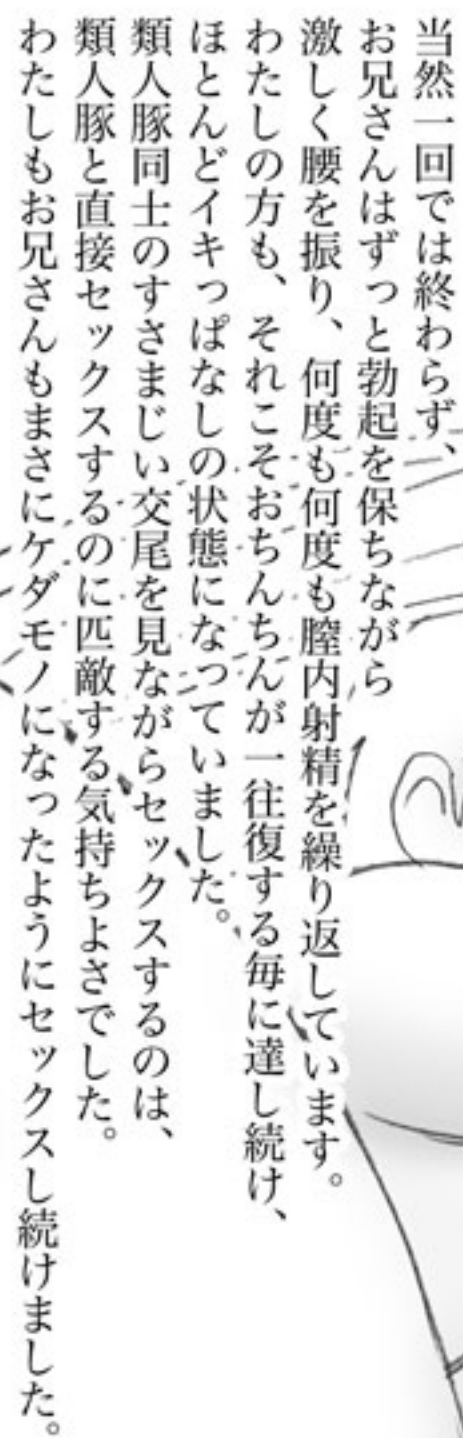 当然一回では終わらず、
お兄さんはずっと勃起を保ちながら
激しく腰を振り、何度も何度も膣内射精を繰り返しています。
わたしの方も、それこそおちんちんが一往復する毎に達し続け、
ほとんどイキっぱなしの状態になっていました。
類人豚同士のすさまじい交尾を見ながらセックスするのは、
類人豚と直接セックスするのに匹敵する気持ちよさでした。
わたしもお兄さんもまさにケダモノになったようにセックスし続けました。